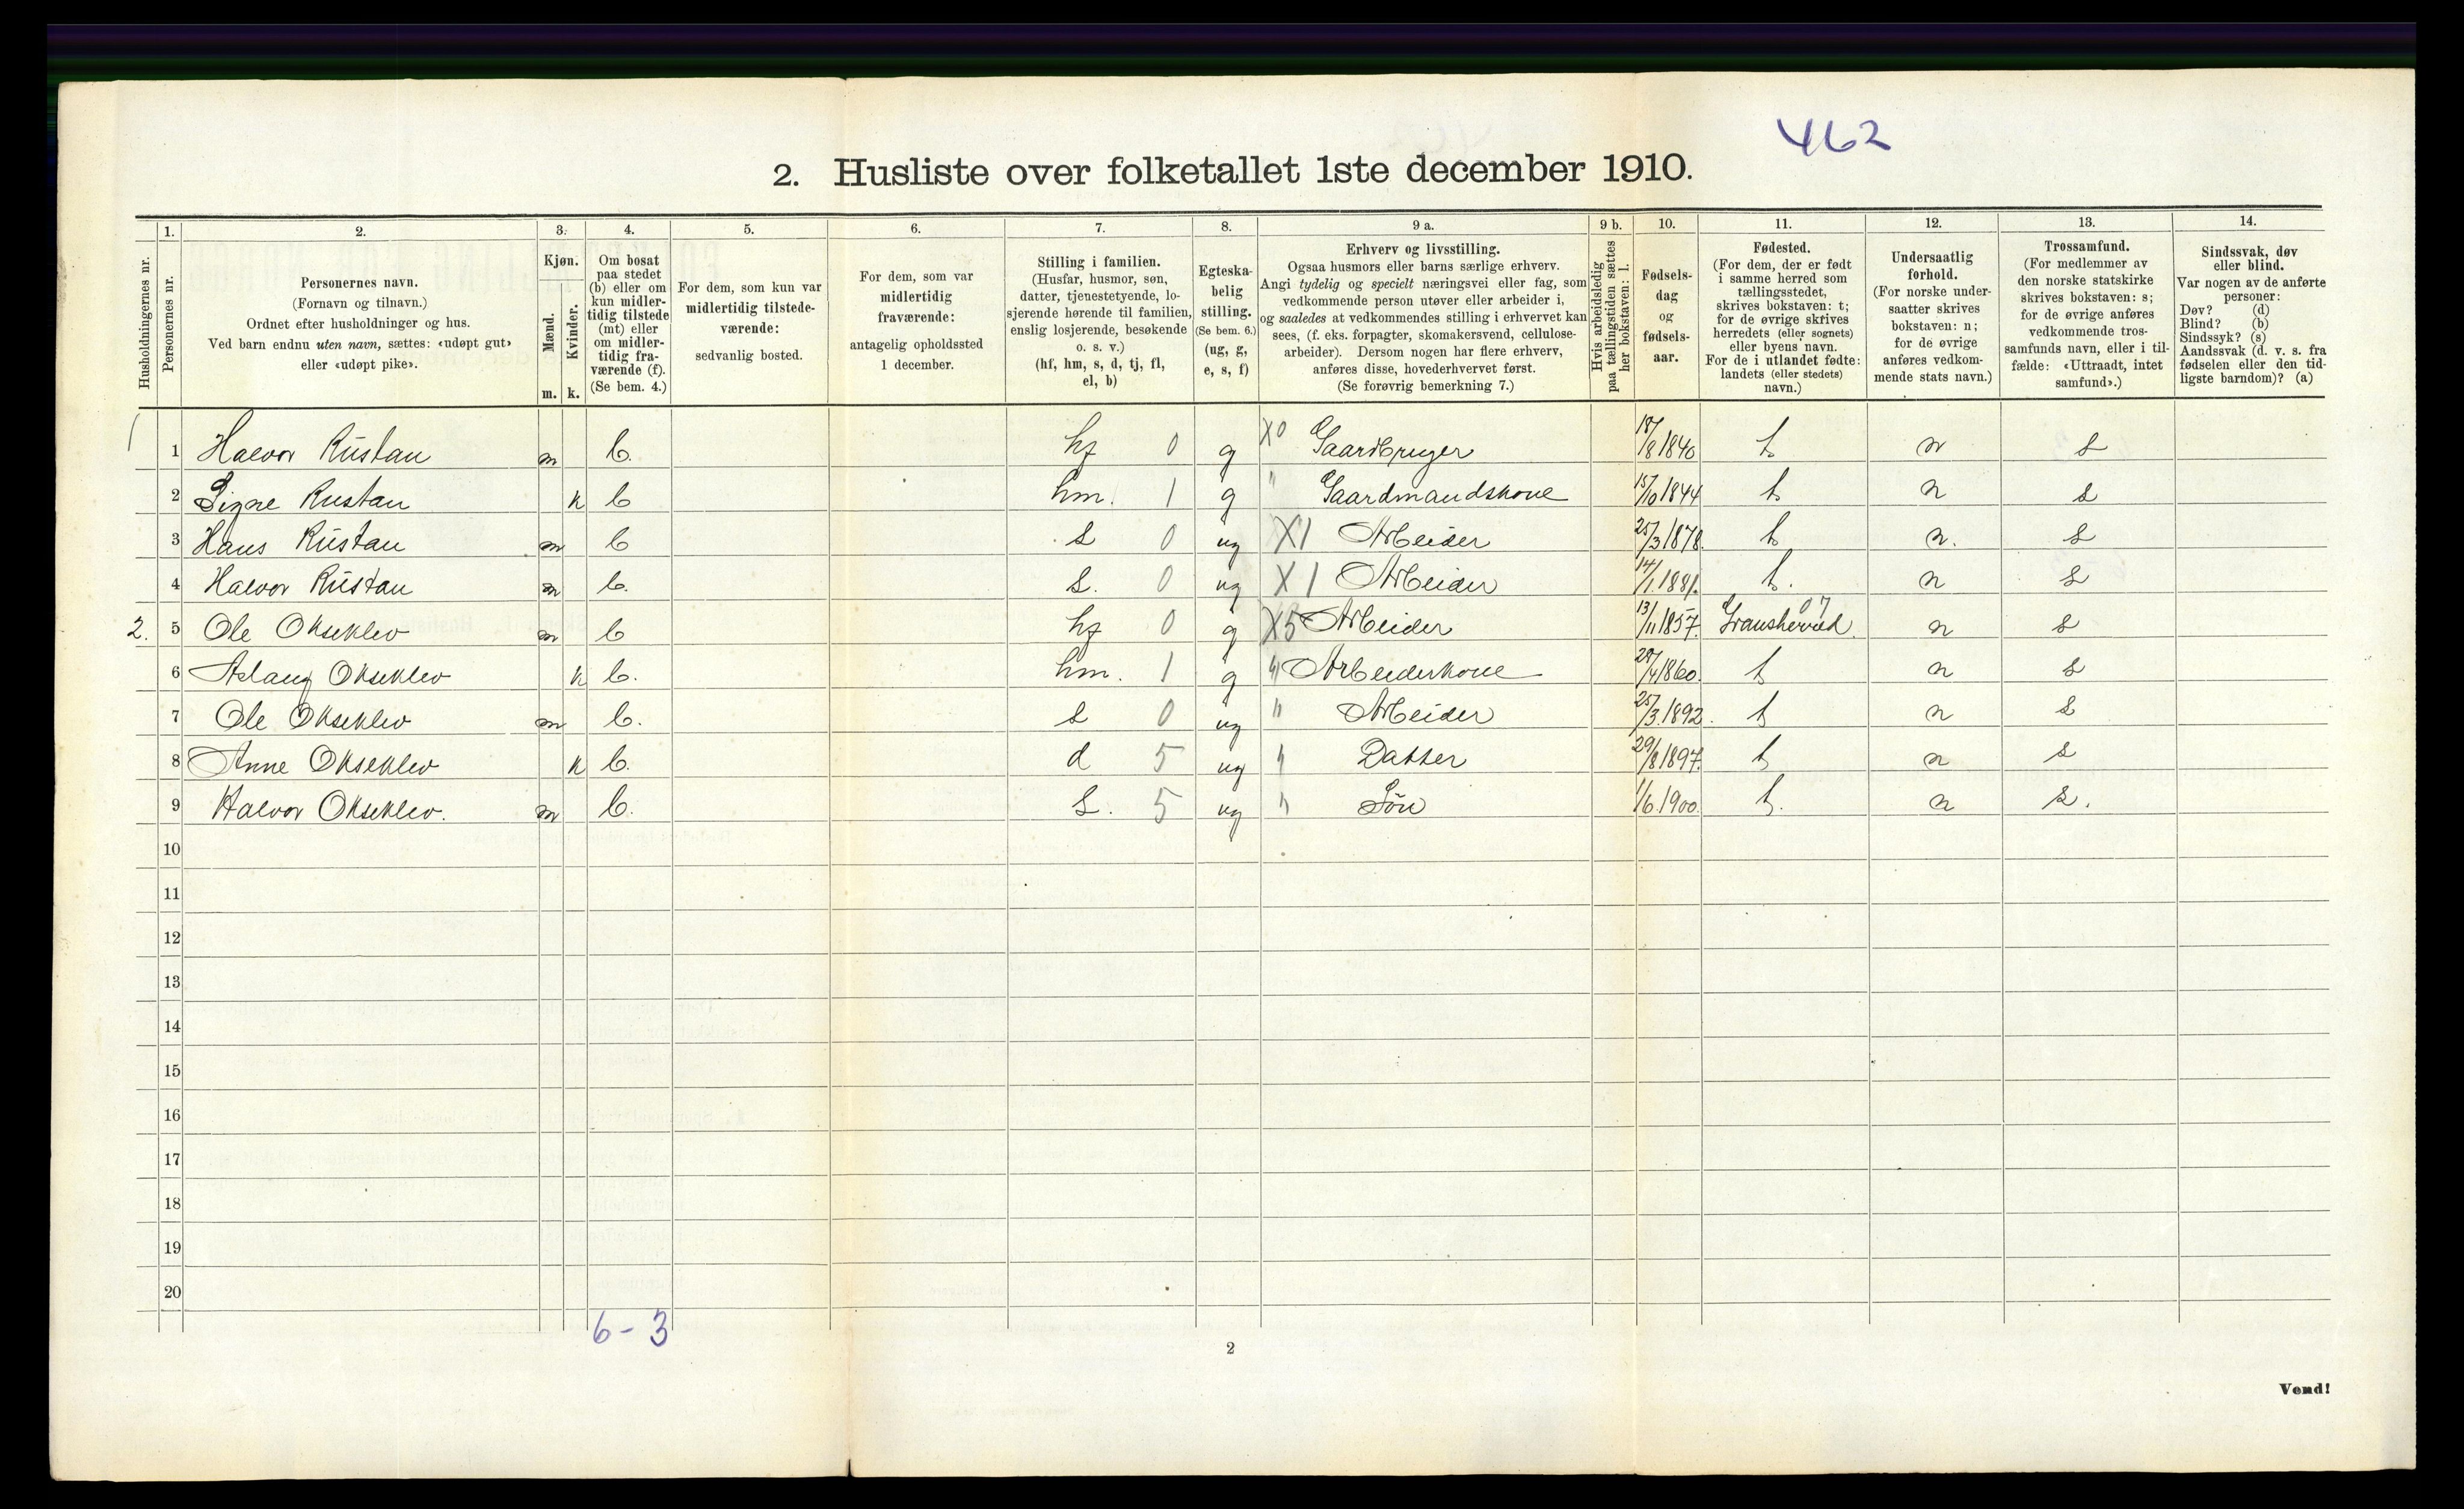 462
2. Husliste over folketallet 1ste december 1910.
Husholdningernes nr.
1. Personernes nr.
2. Personernes navn.
(Fornavn og tilnavn.)
Ordnet efter husholdninger og hus.
Ved barn endnu uten navn, sættes: «udøpt gut»
eller «udøpt pike».
3. Kjøn.
Mænd. m.
Kvinder. k.
4. Om bosat
paa stedet
(b) eller om
kun midler-
tidig tilstede
(mt) eller
om midler-
tidig fra-
værende (f).
(Se bem. 4.)
5. For dem, som kun var
midlertidig tilstede-
værende:
sedvanlig bosted.
6. For dem, som var
midlertidig
fraværende:
antagelig opholdssted
1 december.
7. Stilling i familien.
(Husfar, husmor, søn,
datter, tjenestetyende, lo-
sjerende hørende til familien,
enslig losjerende, besøkende
o. s. v.)
(hf, hm, s, d, tj, fl,
el, b)
8. Egteska-
belig
stilling.
(Se bem. 6.)
(ug, g,
e, s, f)
9 a. Erhverv og livsstilling.
Ogsaa husmors eller barns særlige erhverv.
Angi tydelig og specielt næringsvei eller fag, som
vedkommende person utøver eller arbeider i,
og saaledes at vedkommendes stilling i erhvervet kan
sees, (f. eks. forpagter, skomakersvend, cellulose-
arbeider). Dersom nogen har flere erhverv,
anføres disse, hovederhvervet først.
(Se forøvrig bemerkning 7.)
9 b. Hvis arbeidsledig
paa tællingstiden sættes
her bokstaven: l.
10. Fødsels-
dag
og
fødsels-
aar.
11. Fødested.
(For dem, der er født
i samme herred som
tællingsstedet,
skrives bokstaven: t;
for de øvrige skrives
herredets (eller sognets)
eller byens navn.
For de i utlandet fødte:
landets (eller stedets)
navn.)
12. Undersaatlig
forhold.
(For norske under-
saatter skrives
bokstaven: n;
for de øvrige
anføres vedkom-
mende stats navn.)
13. Trossamfund.
(For medlemmer av
den norske statskirke
skrives bokstaven: s;
for de øvrige anføres
vedkommende tros-
samfunds navn, eller i til-
fælde: «Uttraadt, intet
samfund».)
14. Sindssvak, døv
eller blind.
Var nogen av de anførte
personer:
Døv? (d)
Blind? (b)
Sindssyk? (s)
Aandssvak (d. v. s. fra
fødselen eller den tid-
ligste barndom)? (a)
1 1 Halvor Rustan m b. hf 0 g X0 Gaardbruger 18/8 1840 t n s
2 Signe Rustan k b hm. 1 g " Gaardmandskone 15/10 1844 t. n s
3 Hans Rustan m b s 0 ug X1 Arbeider 25/3 1878. t n. s
4 Halvor Rustan m b. s. 0 ug X1 Arbeider 14/1. 1881. t. n s
2. 5 Ole Okseklev m b hf 0 g X5 Arbeider 13/11 1857. Gransherred 07 n s
6 Aslaug Okseklev k b. hm. 1 g " Arbeiderkone 28/4 1860. t n s
7 Ole Okseklev m b. s 0 ug " Arbeider 25/3. 1892. t n s
8 Anne Okseklev k b. d 5 ug " Datter 29/8 1897. t n s
9 Halvor Okseklev. m b. s. 5 ug " Søn 1/6. 1900. t. n s.
10
11
12
13
14
15
16
17
18
19
20
6 - 3
2
Vend!